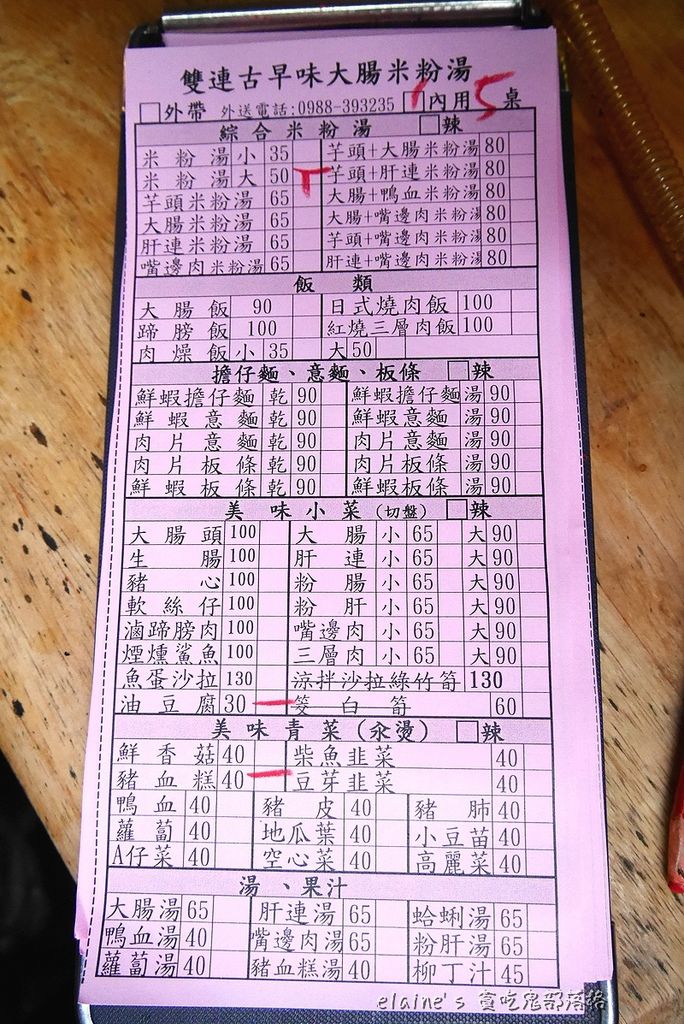 雙連古早味大腸米粉湯
□外帶 外送電話:0988-393235 □內用 5 桌
綜合米粉湯 □辣
米粉湯 小 35 芋頭+大腸米粉湯 80
米粉湯 大 50 芋頭+肝連米粉湯 80
芋頭米粉湯 65 大腸+鴨血米粉湯 80
大腸米粉湯 65 大腸+嘴邊肉米粉湯 80
肝連米粉湯 65 芋頭+嘴邊肉米粉湯 80
嘴邊肉米粉湯 65 肝連+嘴邊肉米粉湯 80
飯 類
大腸飯 90 日式燒肉飯 100
蹄膀飯 100 紅燒三層肉飯 100
肉燥飯 小 35 大 50
擔仔麵、意麵、板條 □辣
鮮蝦擔仔麵 乾 90 鮮蝦擔仔麵 湯 90
鮮蝦意麵 乾 90 鮮蝦意麵 湯 90
肉片意麵 乾 90 肉片意麵 湯 90
肉片板條 乾 90 肉片板條 湯 90
鮮蝦板條 乾 90 鮮蝦板條 湯 90
美味小菜(切盤) □辣
大腸頭 100 大腸 小 65 大 90
生腸 100 肝連 小 65 大 90
豬心 100 粉腸 小 65 大 90
軟絲仔 100 粉肝 小 65 大 90
滷蹄膀肉 100 嘴邊肉 小 65 大 90
煙燻鯊魚 100 三層肉 小 65 大 90
魚蛋沙拉 130 涼拌沙拉綠竹筍 130
油豆腐 30 一 筊白筍 60
美味青菜(汆燙) □辣
鮮香菇 40 柴魚韭菜 40
豬血糕 40 一 豆芽韭菜 40
鴨血 40 豬皮 40 豬肺 40
蘿蔔 40 地瓜葉 40 小豆苗 40
A仔菜 40 空心菜 40 高麗菜 40
湯、果汁
大腸湯 65 肝連湯 65 蛤蜊湯 65
鴨血湯 40 嘴邊肉湯 65 粉肝湯 65
蘿蔔湯 40 豬血糕湯 40 柳丁汁 45
elaine's 貪吃鬼部落格